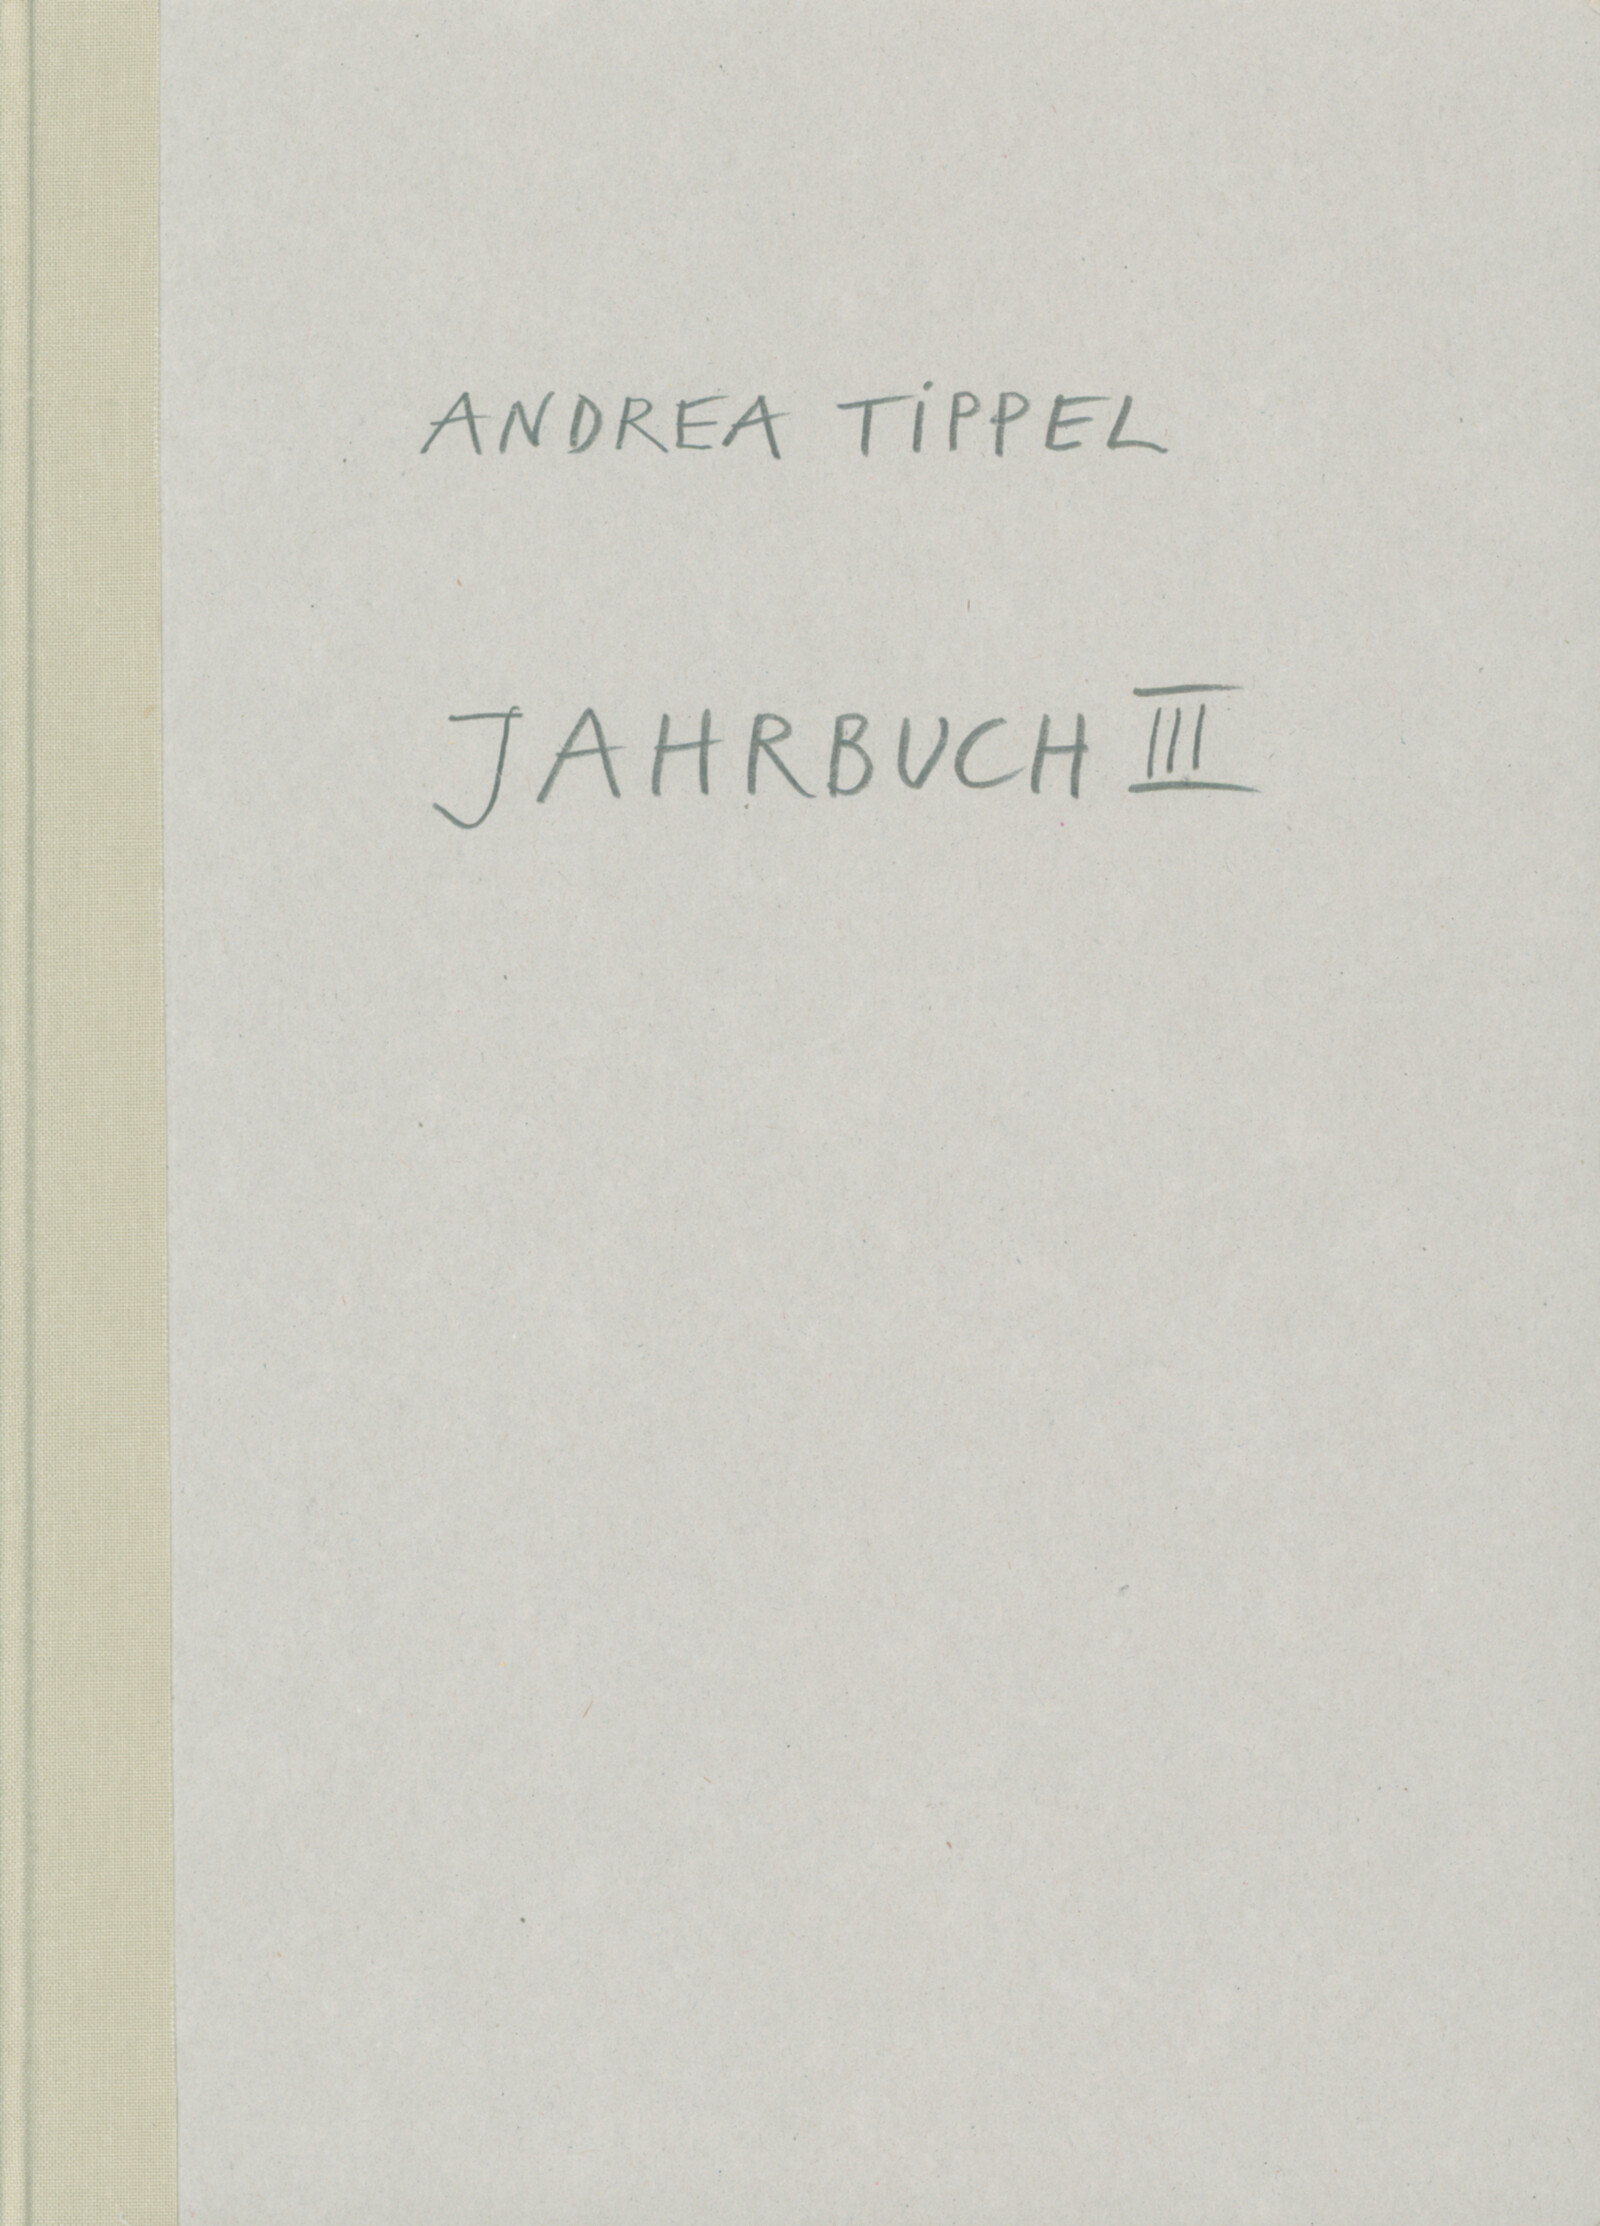 ANDREA TiPPEL
JAHRBUCH III